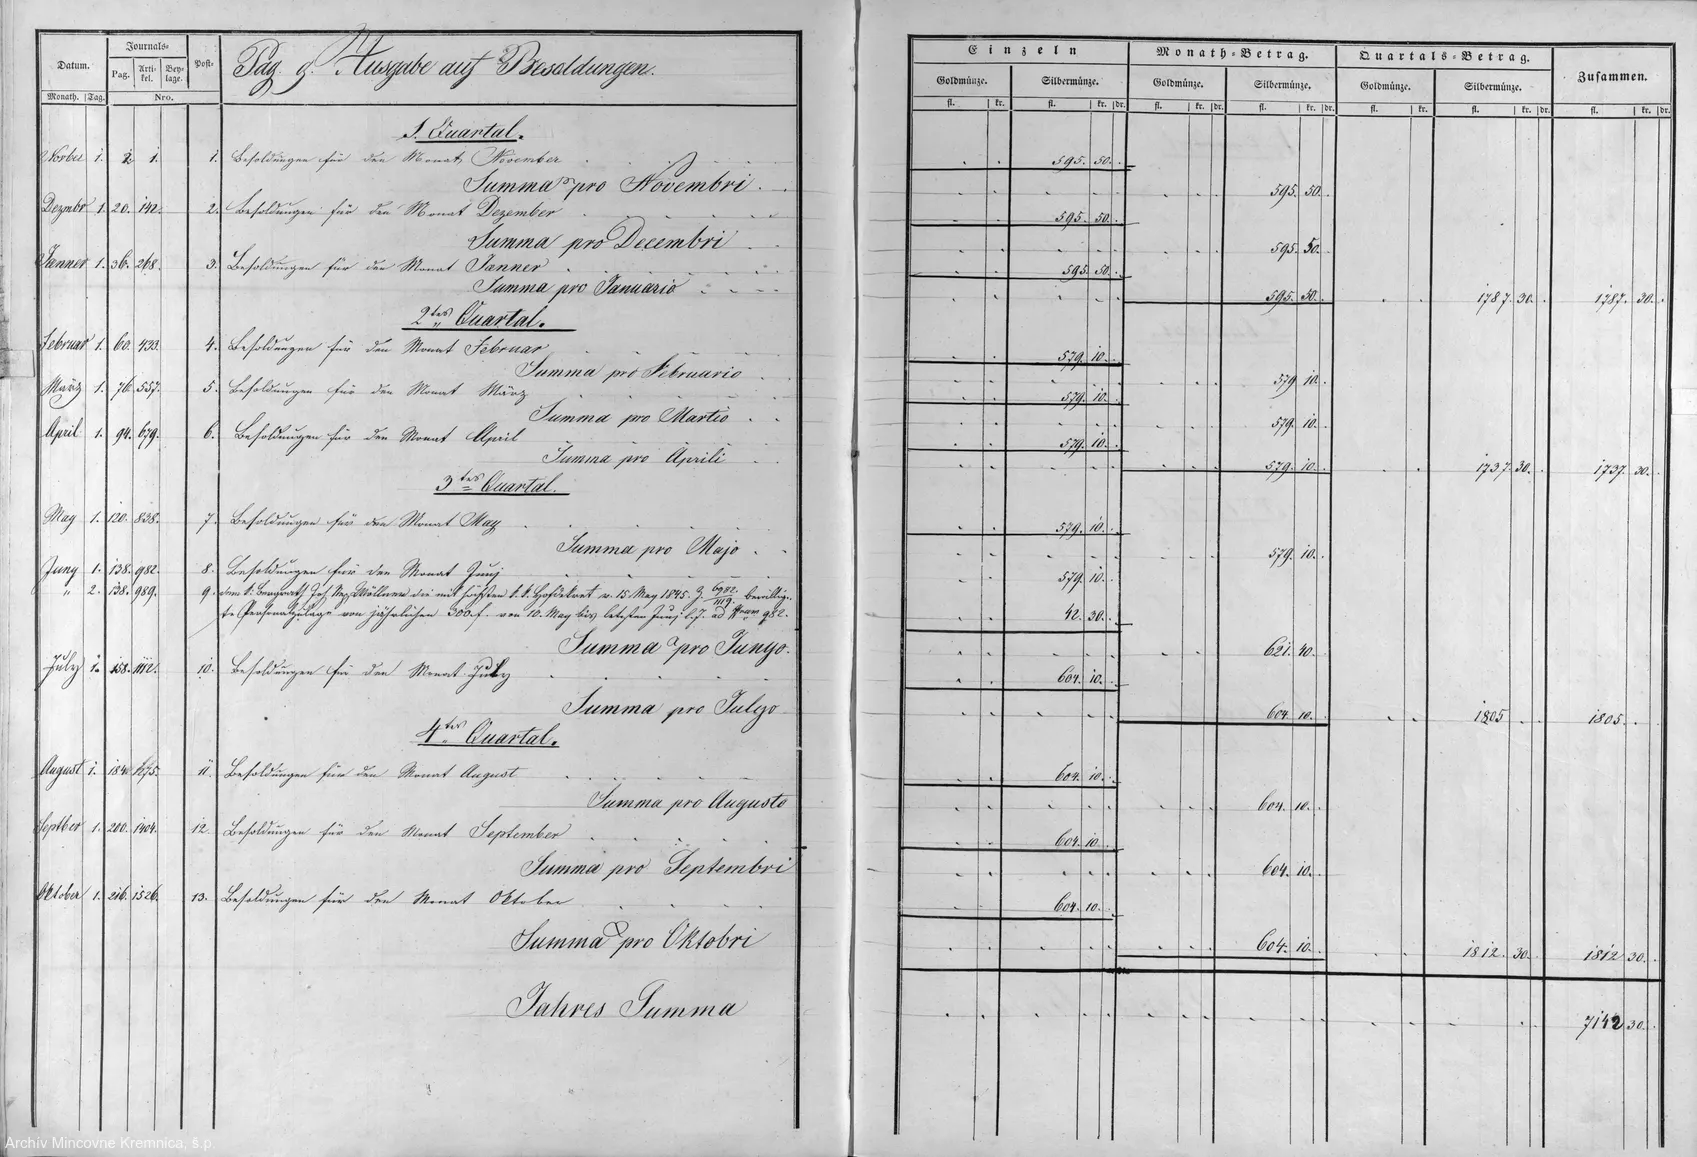 Datum. Journals- Post- Pag. 9. Ausgabe auf Besoldungen.
Pag. Arti-kel. Bey-lage.
Monath. Tag. Nro.
Einzeln Monath-Betrag. Quartals-Betrag. Zusammen.
Goldmünze. Silbermünze. Goldmünze. Silbermünze. Goldmünze. Silbermünze.
fl. kr. fl. kr. dr. fl. kr. dr. fl. kr. dr. fl. kr. fl. kr. dr. fl. kr. dr.
1. Quartal.
Novber 1. 2 1. 1. Besoldungen für den Monat November 595. 50.
Summa pro Novembri 595. 50.
Dezmbr 1. 20. 142. 2. Besoldungen für den Monat Dezember 595. 50.
Summa pro Decembri 595. 50.
Janner 1. 36. 268. 3. Besoldungen für den Monat Janner 595. 50.
Summa pro Januario 595. 50. 1787. 30. 1787. 30.
2tes Quartal.
Februar 1. 60. 423. 4. Besoldungen für den Monat Februar 579. 10.
Summa pro Februario 579 10.
März 1. 76. 557. 5. Besoldungen für den Monat März 579. 10.
Summa pro Martio 579. 10.
April 1. 94. 679. 6. Besoldungen für den Monat April 579. 10.
Summa pro Aprili 579. 10. 1737. 30. 1737. 30.
3tes Quartal.
May 1. 120. 838. 7. Besoldungen für den Monat May 579. 10.
Summa pro Majo 579. 10.
Juny 1. 138. 982. 8. Besoldungen für den Monat Juny 579. 10.
" 2. 138. 989. 9. dem k: Bergrath Jos. die mit höchsten k. k. Hofdekret v. 15 May 1845. Z. bewillig-
te Personalzulage von jährlichen 300 f. von 10. May bis letzten Juny l. J. ad 982. 42. 30.
Summa pro Junyo. 621. 40.
July 1. 158. 1112. 10. Besoldungen für den Monat July 604. 10.
Summa pro Julyo 604. 10. 1805 1805.
4tes Quartal.
August 1. 184. 1275. 11. Besoldungen für den Monat August 604. 10.
Summa pro Augusto 604. 10.
Septber 1. 200. 1404. 12. Besoldungen für den Monat September 604. 10
Summa pro Septembri 604. 10.
Oktober 1. 216. 1526. 13. Besoldungen für den Monat Oktober 604. 10.
Summa pro Oktobri 604. 10. 1812. 30. 1812 30.
Jahres Summa 7142 30.
Archív Mincovne Kremnica, š.p.